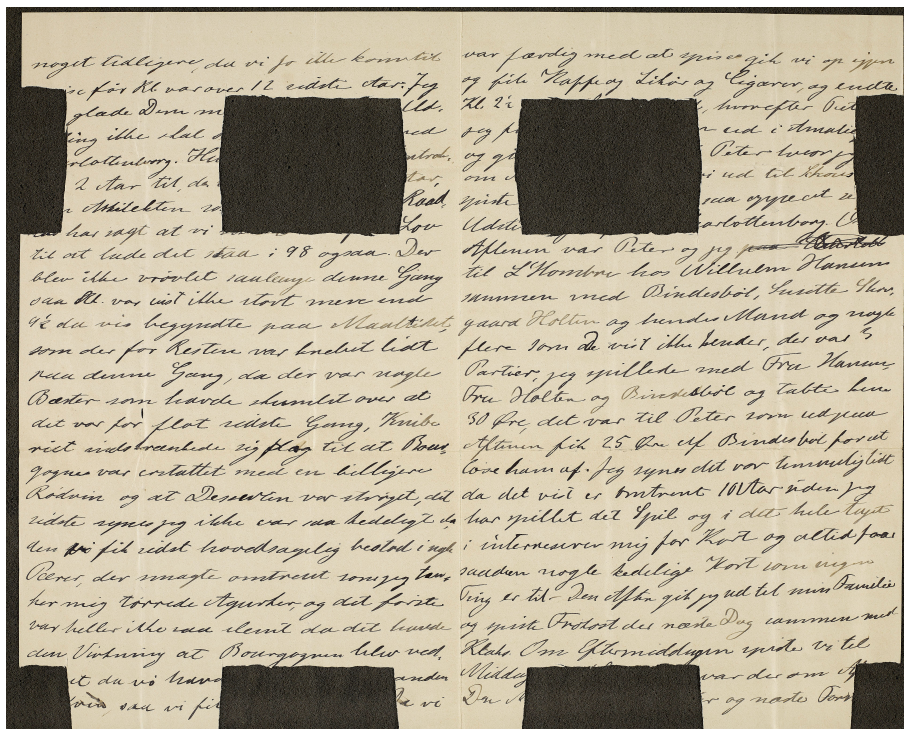 noget tidligere, da vi jo ikke kom til
før Kl var over 12 sidste Aar. Jeg
glæde Dem m
ing ikke skal
rlottenborg. H
2 Aar til, da
n Arkitekten Raad,
har sagt at vi Lov
til at lade det staa i 98 ogsaa. Der
blev ikke vrøvlet saalænge denne Gang
saa Kl. var vist ikke stort mere end
9½ da vi begyndte paa Maaltidet,
som der for Resten var knebet lidt
paa denne Gang, da der var nogle
Bæster som havde skumlet over at
det var for flot sidste Gang, Knibe
riet indskrænkede sig til at Bour
gogne var erstattet med en billigere
Rødvin og at Desserten var strøget, det
sidste synes jeg ikke var saa kedeligt da
den vi fik sidst hovedsagelig bestod i nogle
Pærer, der smagte omtrent som jeg tæn,
ker mig tørrede Agurker, og det første
var heller ikke saa slemt da det havde
den Virkning at Bourgognen blev ved,
et da vi hav anden
vin, saa vi fik vi
var færdig med at spise gik vi op igjen
og fik Kaffe og Likør og Cigarer, og endte
Kl. 2½ , hvorefter Pet
jeg ud i Amalie
og g Peter hvor j
om vi ud til
spiste saa oppe et
Udst arlottenborg
Aftenen var Peter og jeg
til L'Hombre hos Wilhelm Hansen
sammen med Bindesbøl, Susette Skov
gaard Holten og hendes Mand og nogle
flere som De vist ikke kender, der var 3
Partier, jeg spillede med Fru Hansen,
Fru Holten og Bindesbøl og tabte kun
30 Øre, det var til Peter som ud paa
Aftenen fik 25 Øre af Bindesbøl for at
løse ham af. Jeg synes det var temmelig lidt
da det vist er omtrent 10 Aar siden jeg
har spillet det Spil og i det hele taget
i interreserer mig for Kort og altid faar
saadan nogle kedelige Kort som ingen
Ting er til. Den Aften gik jeg ud til min Familie
og spiste Frokost der næste Dag sammen med
Klaks. Om Eftermiddagen spiste vi til
Midda var der om Af
Den M er og næste Form